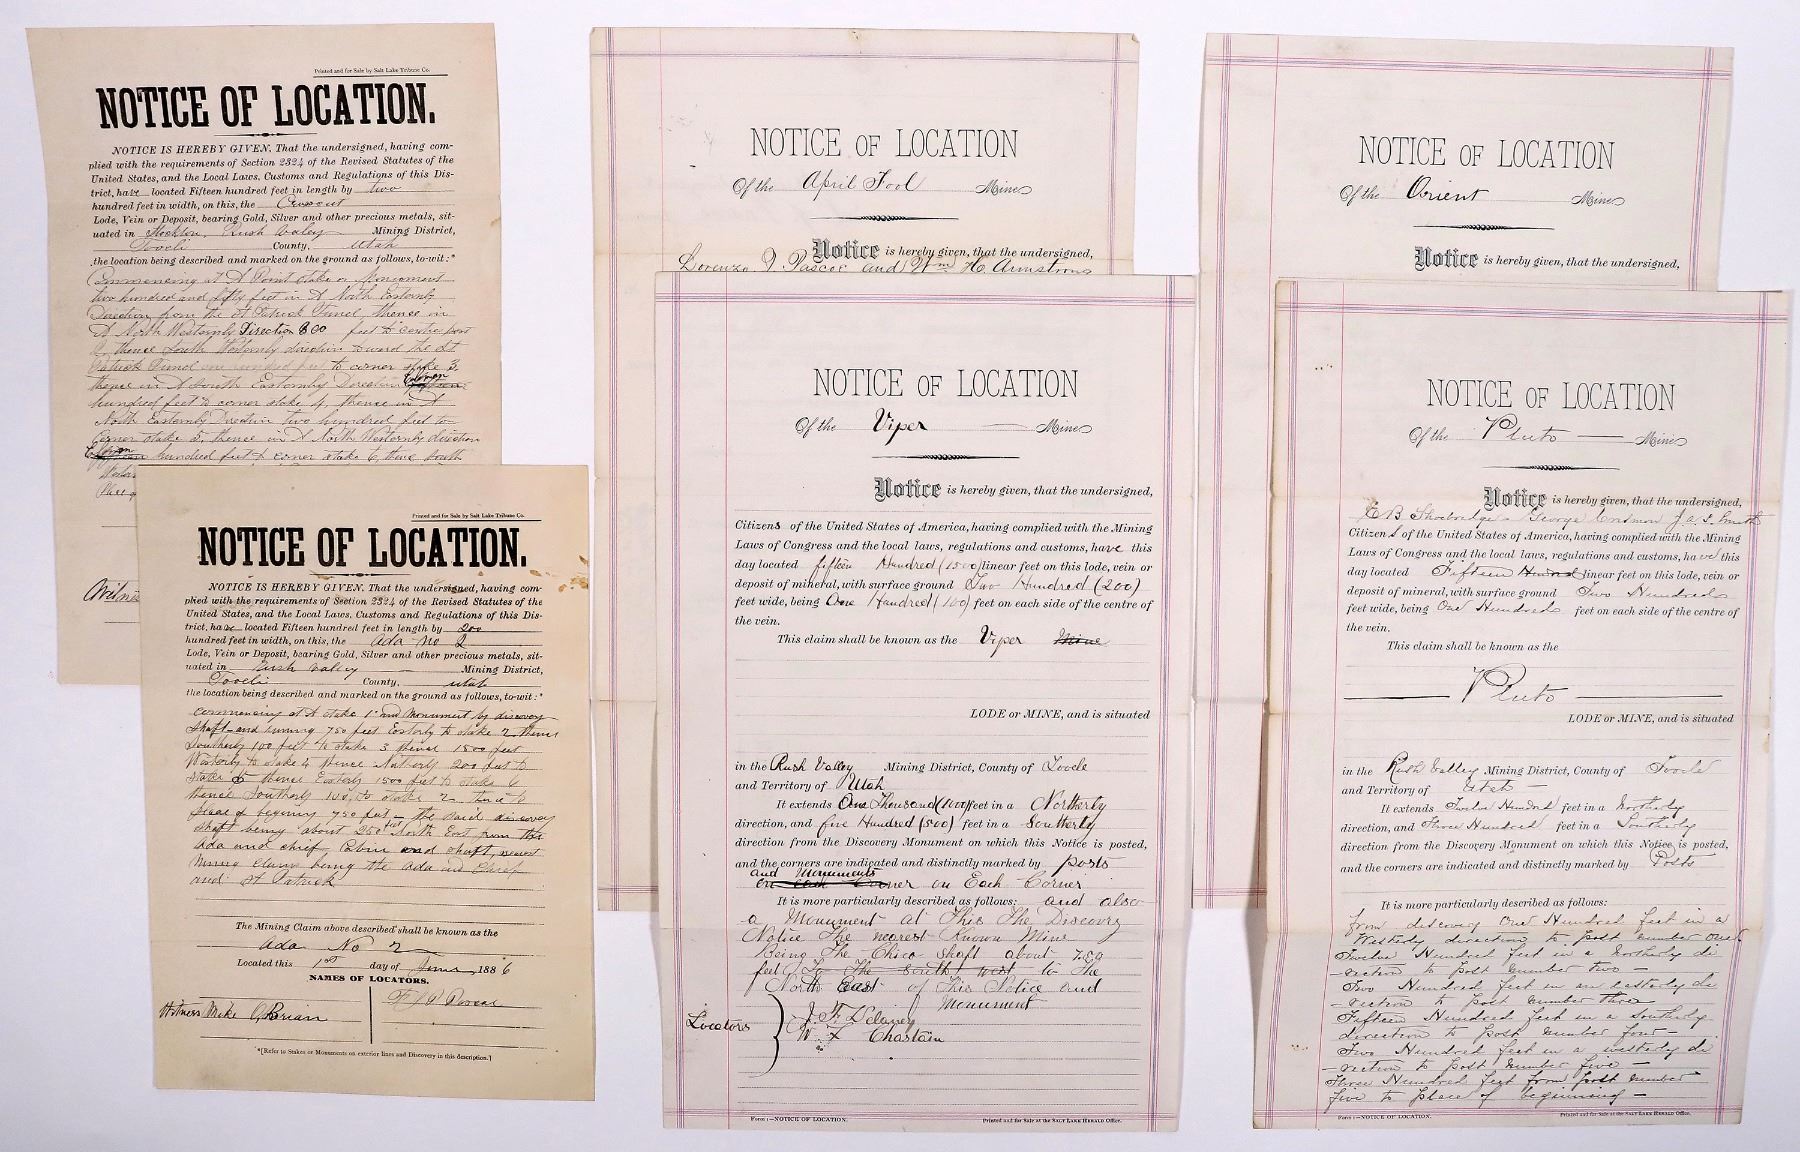 Printed and for Sale by Salt Lake Tribune Co.
NOTICE OF LOCATION.
NOTICE IS HEREBY GIVEN, That the undersigned, having com-
plied with the requirements of Section 2324 of the Revised Statutes of the
United States, and the Local Laws, Customs and Regulations of this Dis-
trict, have located Fifteen hundred feet in length by two
hundred feet in width, on this, the
Lode, Vein or Deposit, bearing Gold, Silver and other precious metals, sit-
uated in Stockton, Rush Valey Mining District,
Tooeli County, Utah
the location being described and marked on the ground as follows, to-wit:*
Commencing at A Point stake or Monument
two hundred and fifty feet in A North Easternly
Direction from the St Patrick Tunel, thence in
A North Westernly Direction 800 feet to centre post
thence South Westernly direction toward the St
Patrick Tunel one hundred feet to corner stake 3,
thence in A South Easternly Direction
hundred feet to corner stake 4, thence in A
North Easternly Direction two hundred feet to
Corner stake 5, thence in A North Westernly direction
hundred feet to corner stake 6, thence South
Witnes
Printed and for Sale by Salt Lake Tribune Co.
NOTICE OF LOCATION.
NOTICE IS HEREBY GIVEN, That the undersigned, having com-
plied with the requirements of Section 2324 of the Revised Statutes of the
United States, and the Local Laws, Customs and Regulations of this Dis-
trict, have located Fifteen hundred feet in length by 200
hundred feet in width, on this, the Ada No 2
Lode, Vein or Deposit, bearing Gold, Silver and other precious metals, sit-
uated in Rush Valley Mining District,
Tooeli County, Utah
the location being described and marked on the ground as follows, to-wit:*
commencing at A stake 1 and Monument by discovery
shaft and running 750 feet Easterly to stake 2 thence
Southerly 100 feet to stake 3 thence 1500 feet
Westerly to stake 4 thence Northerly 200 feet to
stake 5 thence Easterly 1500 feet to stake 6
thence Southerly 100, to stake 2 thence to
place of begining 750 feet - the said discovery
shaft being about 250 feet North East from the
Ada and chief Cabin and shaft, nearest
Mining Claims being the Ada and Chief
and St Patrick
The Mining Claim above described shall be known as the
Ada No 2
Located this 1st day of June 1886
NAMES OF LOCATORS.
Witness Mike O,Brian
*[Refer to Stakes or Monuments on exterior lines and Discovery in this description.]
NOTICE OF LOCATION
Of the April Fool Mine
Notice is hereby given, that the undersigned,
Lorenzo J. Pascoe and Wm H. Armstrong
NOTICE OF LOCATION
Of the Viper Mine
Notice is hereby given, that the undersigned,
Citizens of the United States of America, having complied with the Mining
Laws of Congress and the local laws, regulations and customs, have this
day located fifteen Hundred (1500) linear feet on this lode, vein or
deposit of mineral, with surface ground Two Hundred (200)
feet wide, being One Hundred (100) feet on each side of the centre of
the vein.
This claim shall be known as the Viper Mine
LODE or MINE, and is situated
in the Rush Valley Mining District, County of Tooele
and Territory of Utah
It extends One Thousand (1000) feet in a Northerly
direction, and five Hundred (500) feet in a Southerly
direction from the Discovery Monument on which this Notice is posted,
and the corners are indicated and distinctly marked by posts
and Monuments
on each Corner on Each Corner
It is more particularly described as follows: and also
a Monument at This The Discovry
Notice The nearest Known Mine
Being The Chico Shaft about 750
feet To The South west to the
North East of This Notice and
Monument
Locators
J. F. Delaney
W. F. Chastain
Form 1—NOTICE OF LOCATION.
Printed and for Sale at the SALT LAKE HERALD Office.
NOTICE OF LOCATION
Of the Orient Mine
Notice is hereby given, that the undersigned,
NOTICE OF LOCATION
Of the Pluto Mine
Notice is hereby given, that the undersigned,
Citizens of the United States of America, having complied with the Mining
Laws of Congress and the local laws, regulations and customs, have this
day located Fifteen Hundred linear feet on this lode, vein or
deposit of mineral, with surface ground Two Hundred
feet wide, being One Hundred feet on each side of the centre of
the vein.
This claim shall be known as the
Pluto
LODE or MINE, and is situated
in the Rush Valley Mining District, County of Tooele
and Territory of Utah
It extends Twelve Hundred feet in a Northerly
direction, and Three Hundred feet in a Southerly
direction from the Discovery Monument on which this Notice is posted,
and the corners are indicated and distinctly marked by Posts
It is more particularly described as follows:
from discovery One Hundred feet in a
Westerly direction to post number one
Twelve Hundred feet in a Northerly di
-rection to post number two -
Two Hundred feet in an easterly di
-rection to post number three
Fifteen Hundred feet in a Southerly
direction to post number four -
Two Hundred feet in a westerly di
-rection to post number five -
Three Hundred feet from post number
five to place of beginning -
Form 1—NOTICE OF LOCATION.
Printed and for Sale at the SALT LAKE HERALD Office.